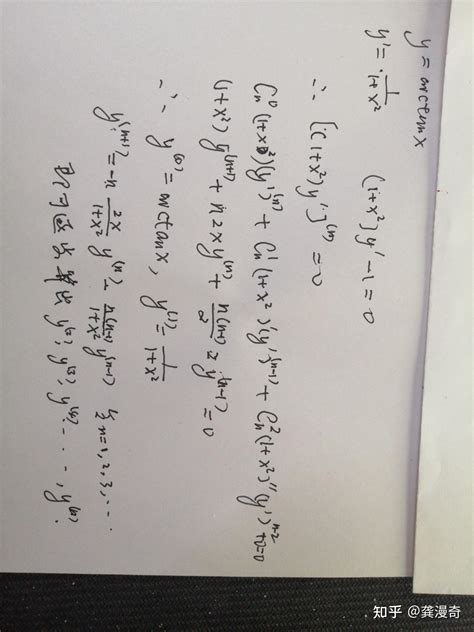 y = arctanx
y' = 1/(1+x²)    (1+x²)y' - 1 = 0
∴ [(1+x²)y']^(n) = 0
Cn^0 (1+x²)(y')^(n) + Cn^1 (1+x²)'(y')^(n-1) + Cn^2 (1+x²)''(y')^(n-2) + 0 = 0
(1+x²) y^(n+1) + n 2x y^(n) + n(n-1)/2 2 y^(n-1) = 0
∵ y^(0) = arctanx, y^(1) = 1/(1+x²)
y^(n+1) = -n 2x/(1+x²) y^(n) - n(n-1)/(1+x²) y^(n-1)    n=1, 2, 3, ...
即可 y^(2), y^(3), y^(4), ..., y^(n).
知乎 @龚漫奇